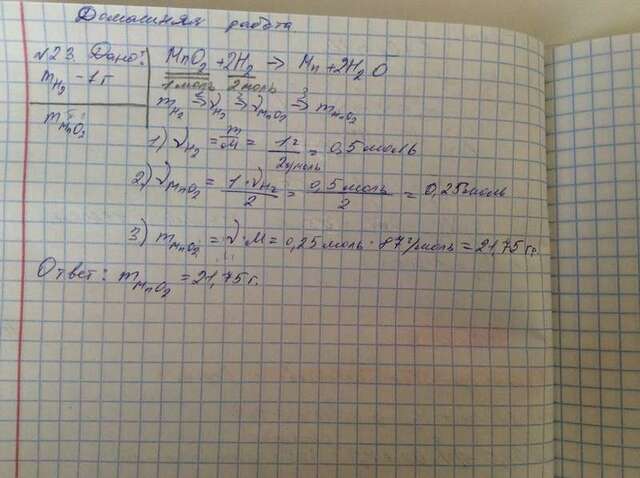 Домашняя работа.
№23. Дано: MnO₂ + 2H₂ → Mn + 2H₂O
m H₂ - 1 г 1 моль 2 моль
m H₂ → ν H₂ → ν MnO₂ → m MnO₂
m MnO₂
1) ν H₂ = m/M = 1 г / 2 г/моль = 0,5 моль
2) ν MnO₂ = 1·ν H₂ / 2 = 0,5 моль / 2 = 0,25 моль
3) m MnO₂ = ν·M = 0,25 моль · 87 г/моль = 21,75 гр.
Ответ: m MnO₂ = 21,75 г.